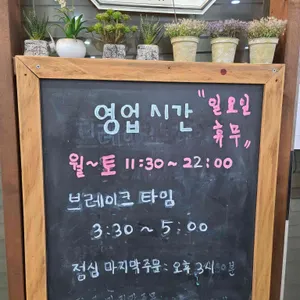 영업 시간
"일요일
휴무"
월~토 11:30~22:00
브레이크 타임
3:30~5:00
점심 마지막주문: 오후